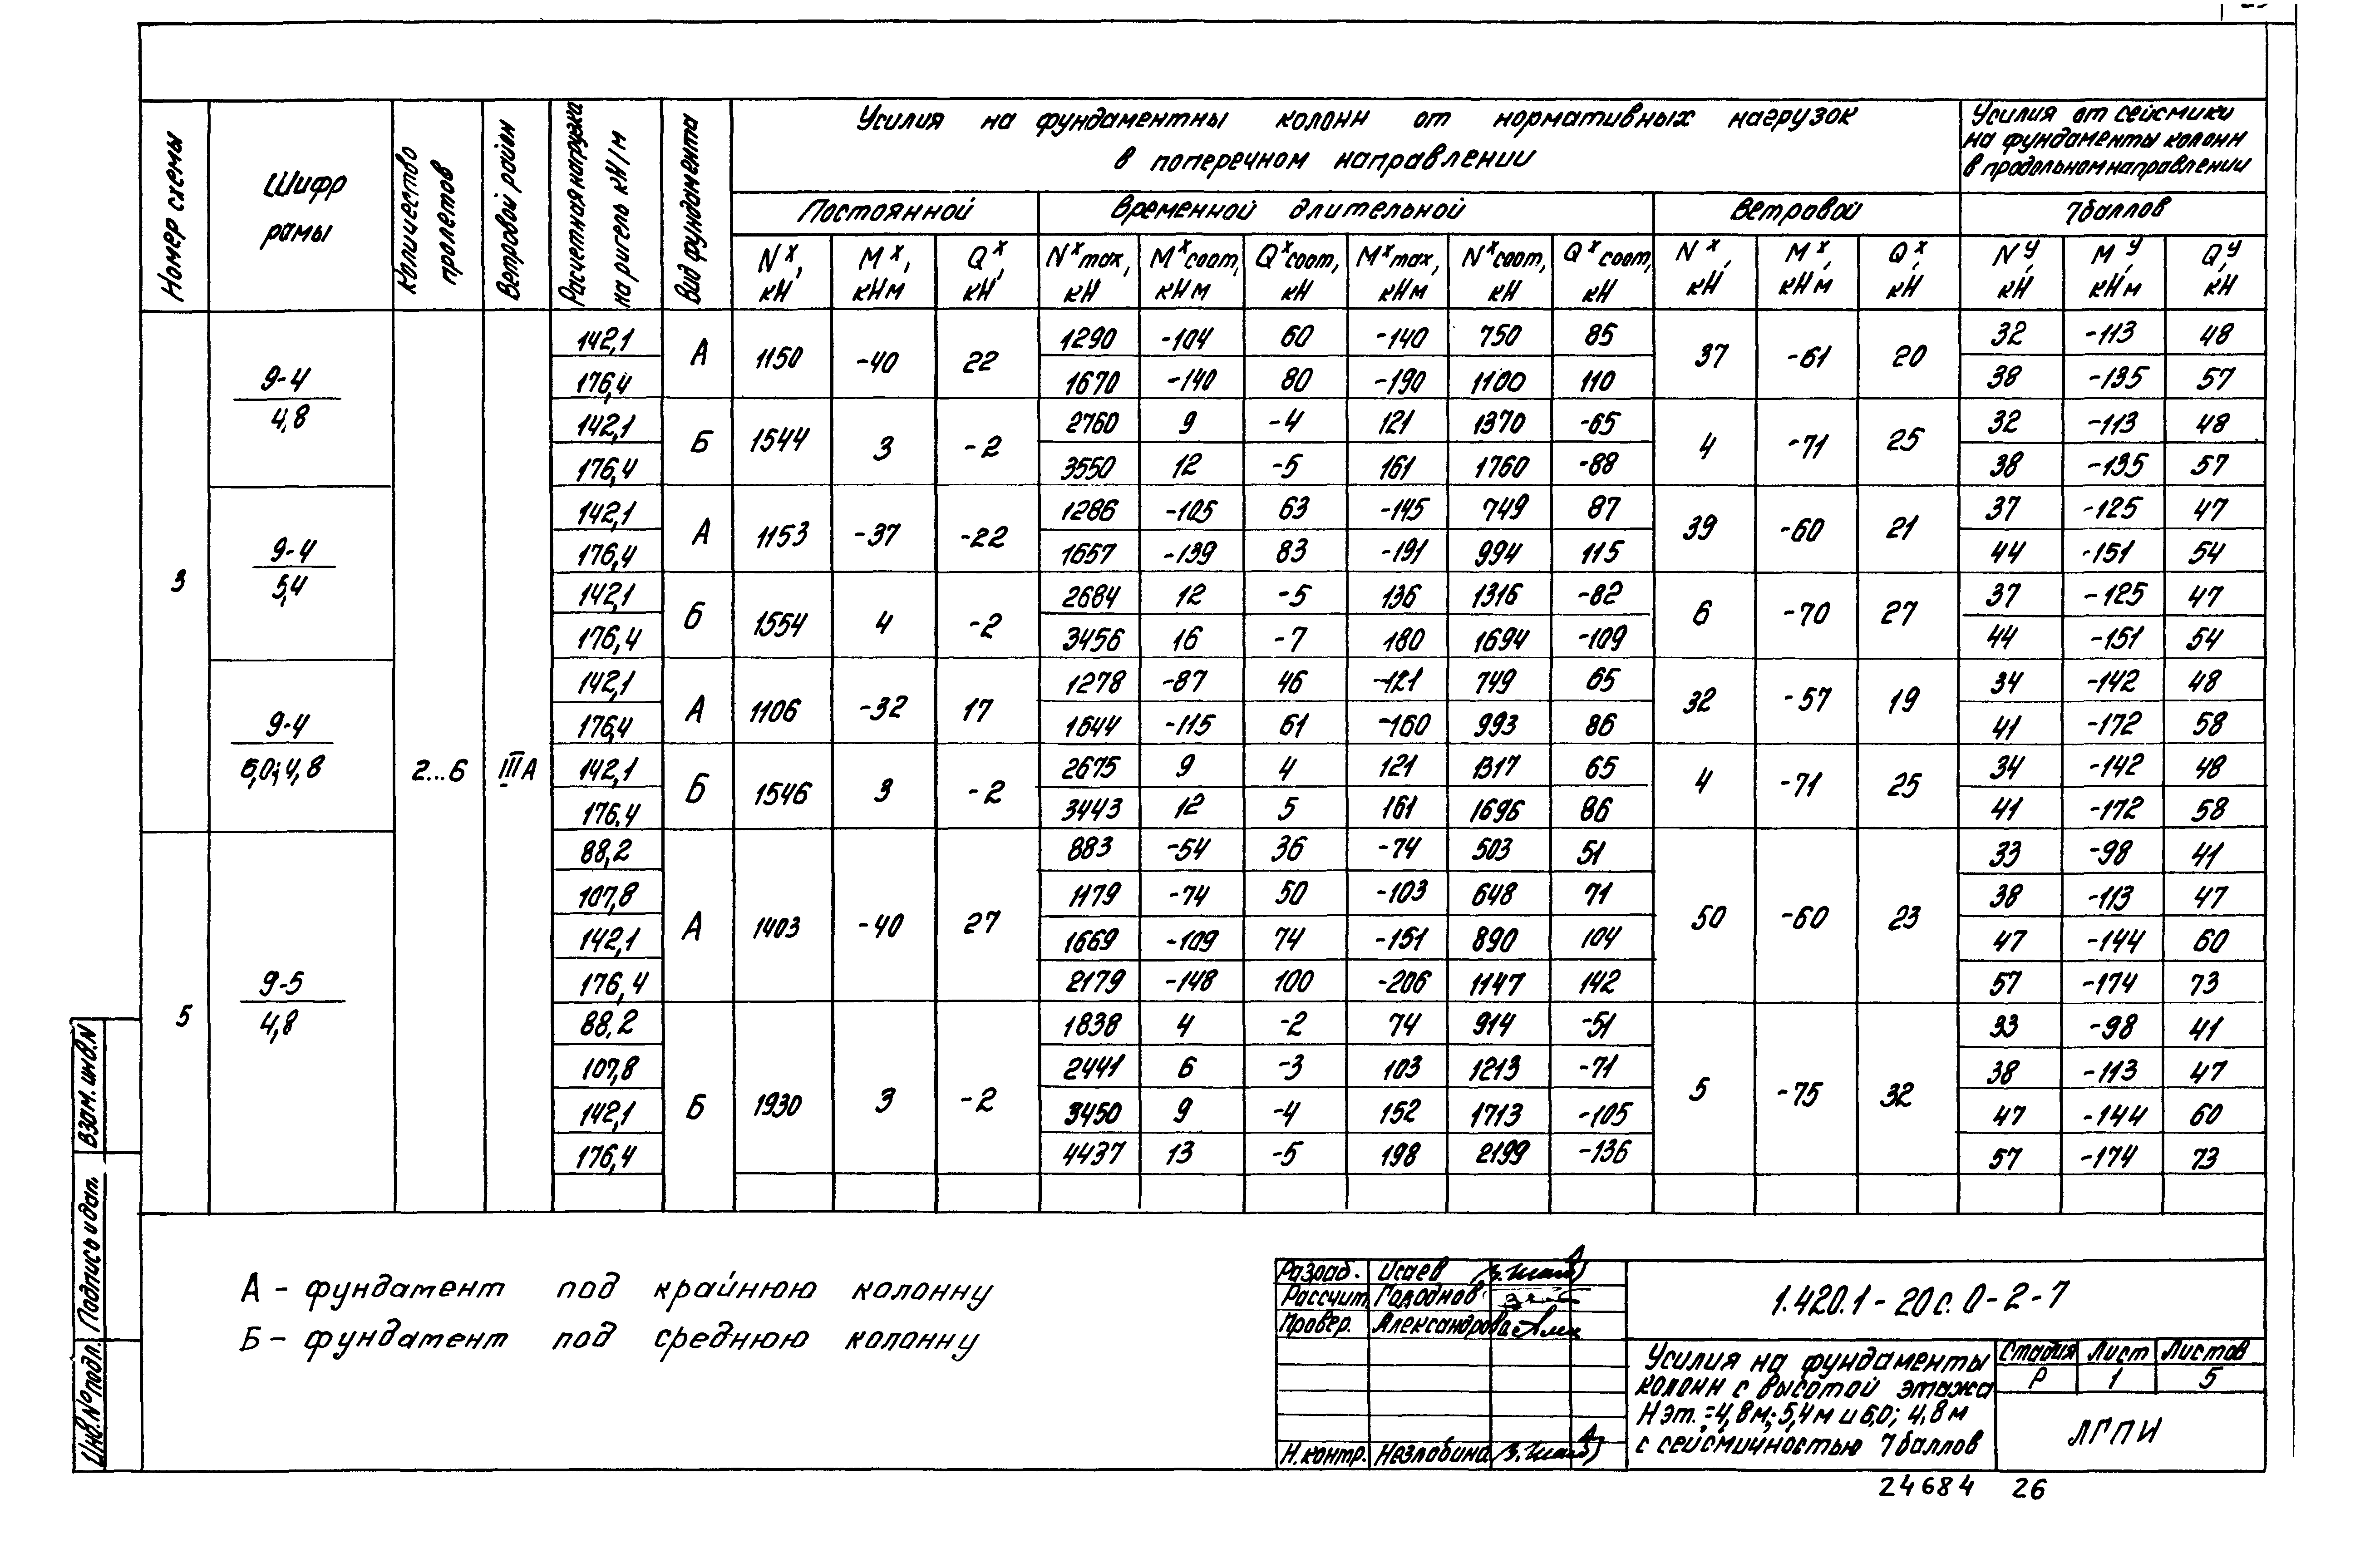 Номер схемы
Шифр рамы
Количество пролетов
Ветровой район
Расчетная нагрузка на ригель кН/м
Вид фундамента
Усилия на фундаментны колонн от нормативных нагрузок
в поперечном направлении
Усилия от сейсмики
на фундаменты колонн
в продольном направлении
Постоянной Временной длительной Ветровой 7баллов
N x, кН M x, кНм Q x, кН N x max, кН M x соот, кНм Q x соот, кН M x max, кНм N x соот, кН Q x соот, кН N x, кН M x, кНм Q x, кН N y, кН M y, кНм Q y, кН
3 9-4 / 4,8 2...6 IIIА
142,1 А 1150 -40 22 1290 -104 60 -140 750 85 37 -61 20 32 -113 48
176,4 1670 -140 80 -190 1100 110 38 -135 57
142,1 Б 1544 3 -2 2760 9 -4 121 1370 -65 4 -71 25 32 -113 48
176,4 3550 12 -5 161 1760 -88 38 -135 57
9-4 / 5,4
142,1 А 1153 -37 -22 1286 -105 63 -145 749 87 39 -60 21 37 -125 47
176,4 1657 -139 83 -191 994 115 44 -151 54
142,1 Б 1554 4 -2 2684 12 -5 136 1316 -82 6 -70 27 37 -125 47
176,4 3456 16 -7 180 1694 -109 44 -151 54
9-4 / 6,0; 4,8
142,1 А 1106 -32 17 1278 -87 46 -121 749 65 32 -57 19 34 -142 48
176,4 1644 -115 61 -160 993 86 41 -172 58
142,1 Б 1546 3 -2 2675 9 4 121 1317 65 4 -71 25 34 -142 48
176,4 3443 12 5 161 1696 86 41 -172 58
5 9-5 / 4,8
88,2 А 1403 -40 27 883 -54 36 -74 503 51 50 -60 23 33 -98 41
107,8 1179 -74 50 -103 648 71 38 -113 47
142,1 1669 -109 74 -151 890 104 47 -144 60
176,4 2179 -148 100 -206 1147 142 57 -174 73
88,2 Б 1930 3 -2 1838 4 -2 74 914 -51 5 -75 32 33 -98 41
107,8 2441 6 -3 103 1213 -71 38 -113 47
142,1 3450 9 -4 152 1713 -105 47 -144 60
176,4 4437 13 -5 198 2199 -136 57 -174 73
А - фундамент под крайнюю колонну
Б - фундамент под среднюю колонну
Разраб. Исаев
Рассчит. Городнов
Провер. Александрова
Н.контр. Незлобина
1.420.1-20с. 0-2-7
Усилия на фундаменты
колонн с высотой этажа
Нэт.=4,8м; 5,4м и 6,0; 4,8м
с сейсмичностью 7баллов
Стадия Лист Листов
Р 1 5
ЛГПИ
24684 26
Взам. инв.N
Подпись и дат.
Инв.№подл.